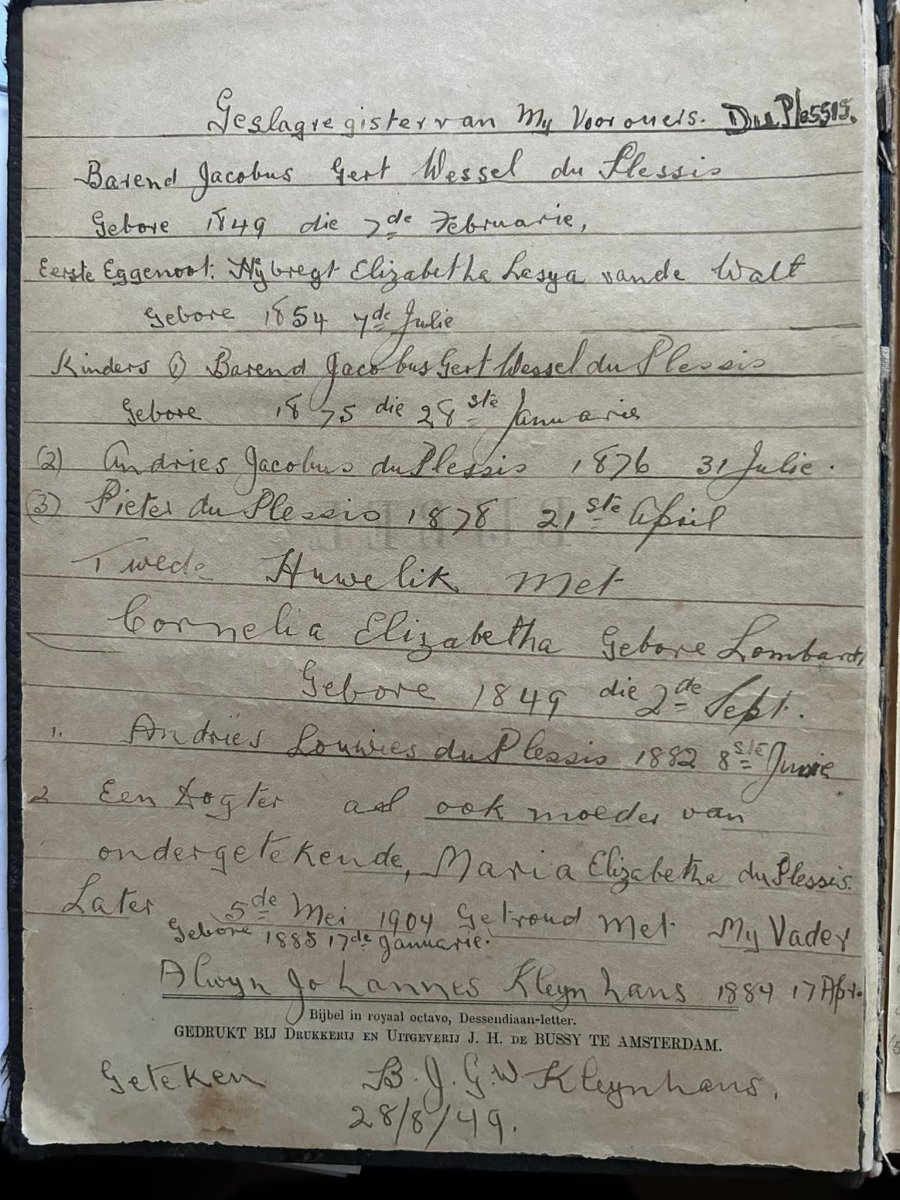 Geslagregister van My Voorouers. Du Plessis.
Barend Jacobus Gert Wessel du Plessis
Gebore 1849 die 7de Februarie,
Eerste Eggenoot: Hybregt Elizabetha Lesya vande Walt
Gebore 1854 7de Julie
Kinders (1) Barend Jacobus Gert Wessel du Plessis
Gebore 1875 die 28ste Januarie
(2) Andries Jacobus du Plessis 1876 31 Julie.
(3) Pieter du Plessis 1878 21ste April
Twede Huwelik met
Cornelia Elizabetha Gebore Lombardt,
Gebore 1849 die 2de Sept.
1. Andries Louwies du Plessis 1882 8ste Junie
2 Een Dogter as ook moeder van
ondergetekende, Maria Elizabetha du Plessis.
Later 5de Mei 1904 Getroud met My Vader
Gebore 1885 17de Januarie.
Alwyn Johannes Kleynhans 1884 17 Apr.
Bijbel in royaal octavo, Dessendiaan-letter.
GEDRUKT BIJ DRUKKERIJ EN UITGEVERIJ J. H. DE BUSSY TE AMSTERDAM.
Geteken B. J. G. W Kleynhans.
28/8/49.